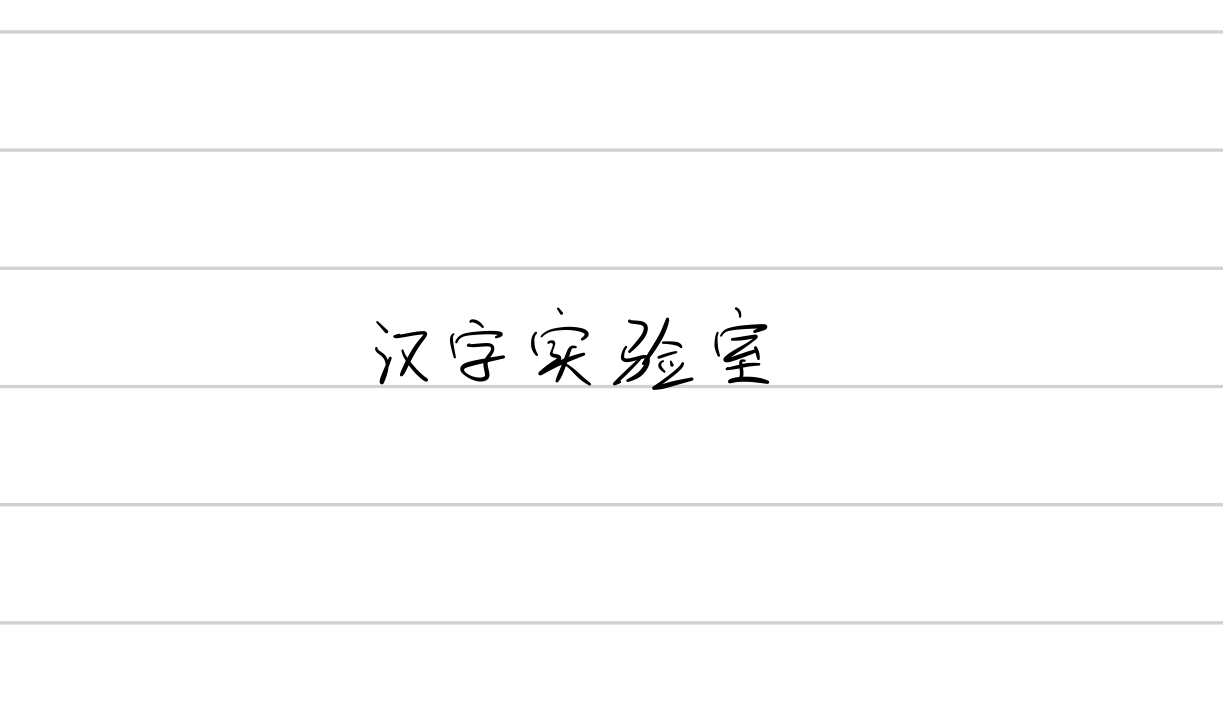 汉字实验室